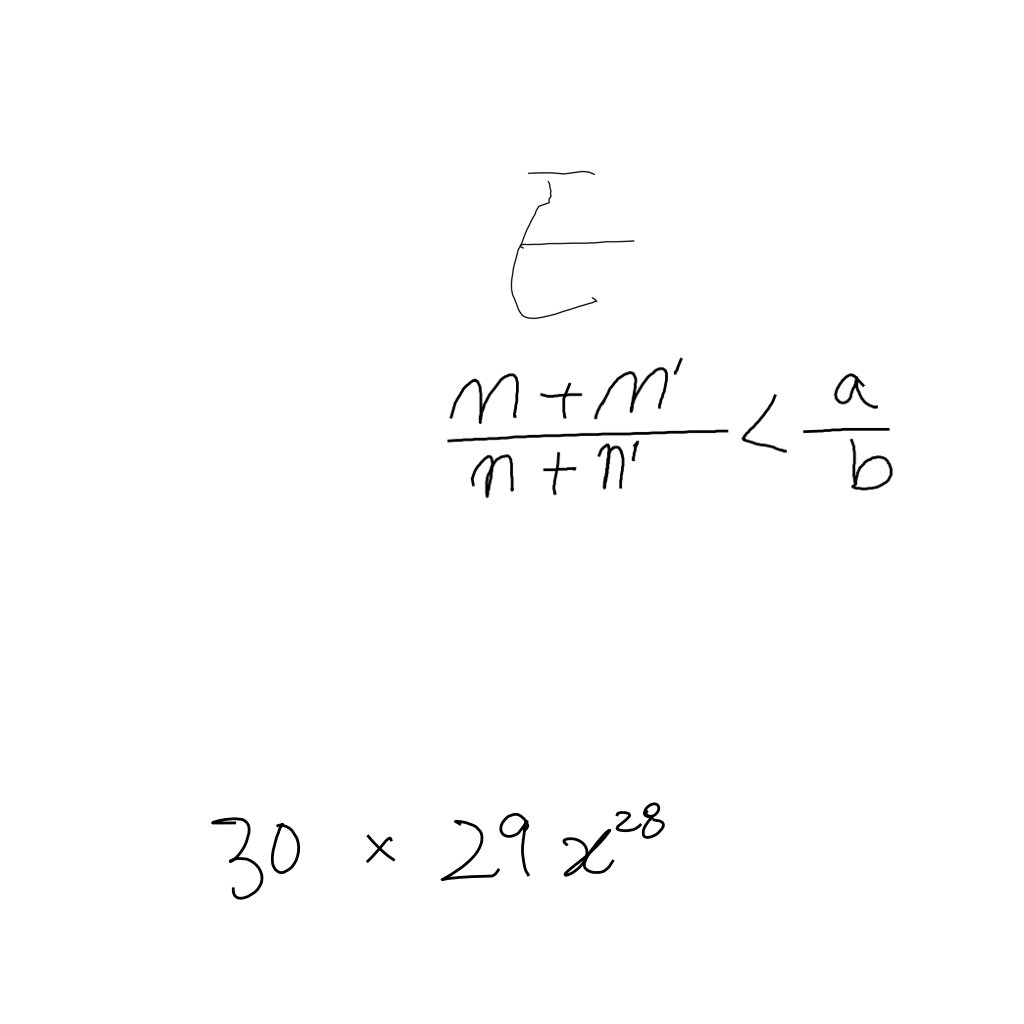 E
\frac{m+m'}{n+n'} < \frac{a}{b}
30 × 29x^{28}